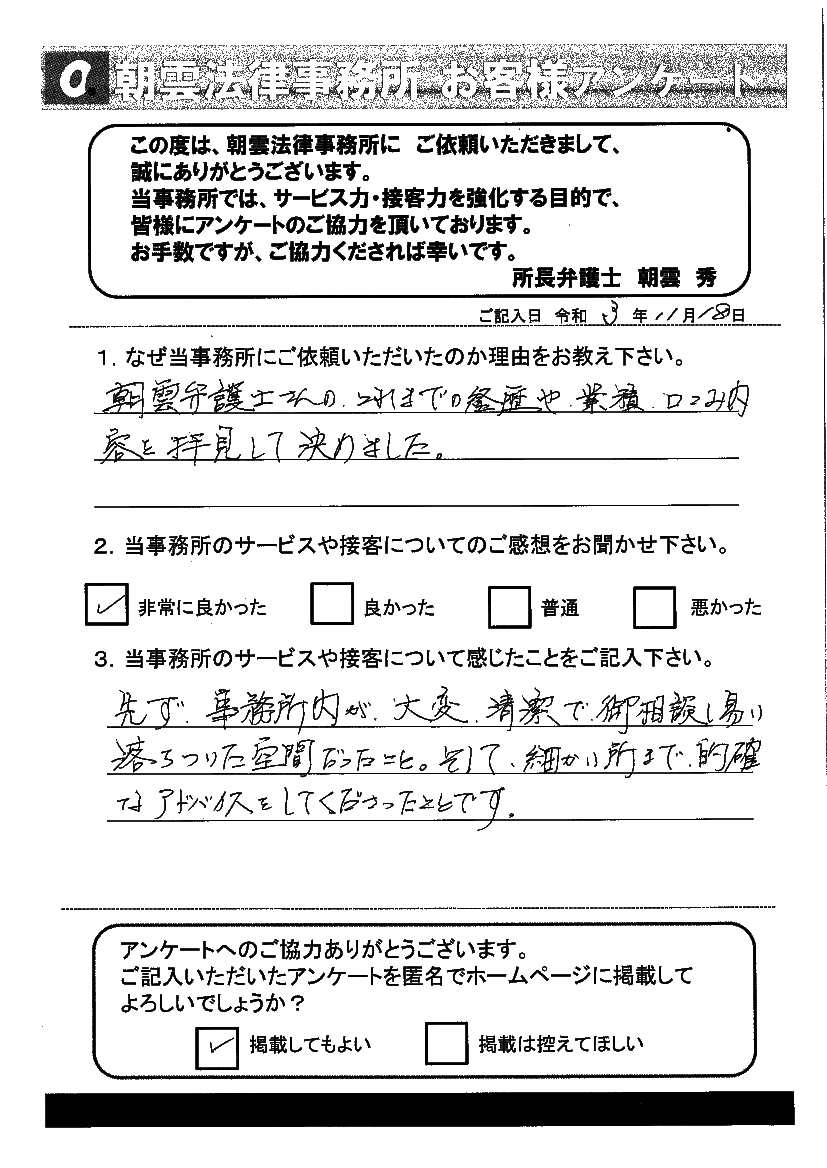 朝雲法律事務所 お客様アンケート
この度は、朝雲法律事務所に ご依頼いただきまして、
誠にありがとうございます。
当事務所では、サービス力・接客力を強化する目的で、
皆様にアンケートのご協力を頂いております。
お手数ですが、ご協力くだされば幸いです。
所長弁護士 朝雲 秀
ご記入日 令和 3 年 11月18日
1. なぜ当事務所にご依頼いただいたのか理由をお教え下さい。
朝雲弁護士さんの、これまでの経歴や、業績、口コミ内
容を拝見して決めました。
2. 当事務所のサービスや接客についてのご感想をお聞かせ下さい。
✓ 非常に良かった 良かった 普通 悪かった
3. 当事務所のサービスや接客について感じたことをご記入下さい。
先ず、事務所内が、大変、清潔で、御相談し易い
落ちついた空間だったこと。そして、細かい所まで、的確
なアドバイスをしてくださったことです。
アンケートへのご協力ありがとうございます。
ご記入いただいたアンケートを匿名でホームページに掲載して
よろしいでしょうか？
✓ 掲載してもよい 掲載は控えてほしい